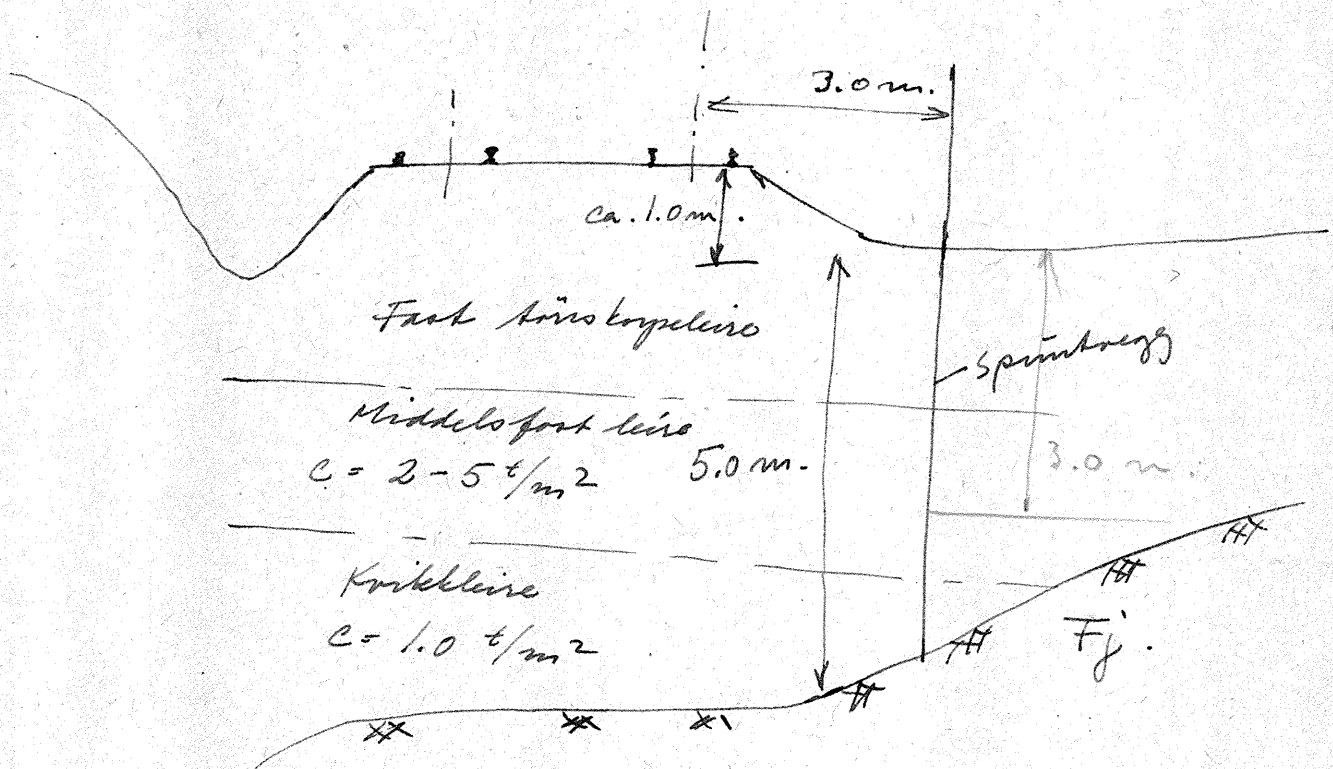 3.0 m.
ca. 1.0 m.
Fast törrskorpeleire
Spuntvegg
Middelsfast leire
C = 2 - 5 t/m²
5.0 m.
3.0 m.
Kvikkleire
C = 1.0 t/m²
Fj.